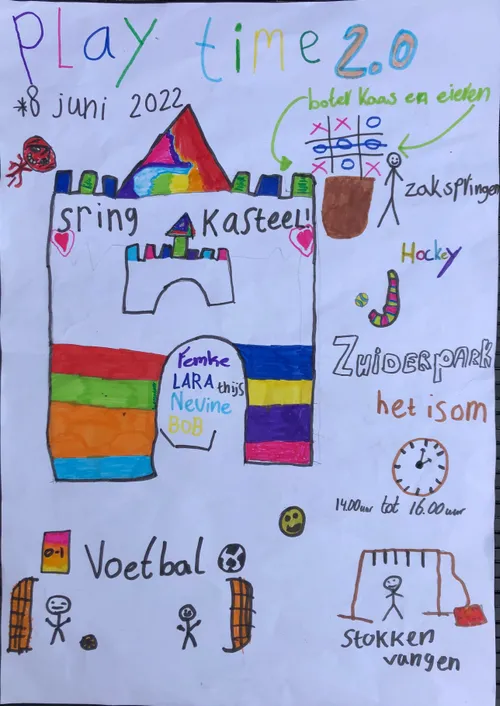 PLay time 2.0
*8 juni 2022
boter kaas en eieren
X X O
O O O
O X
sring kasteel!
zakspringen
Hockey
Femke
LARA thijs
Nevine
BOB
Zuiderpark
het is om
14.00 uur tot 16.00 uur
0-1
Voetbal
Stokken
vangen